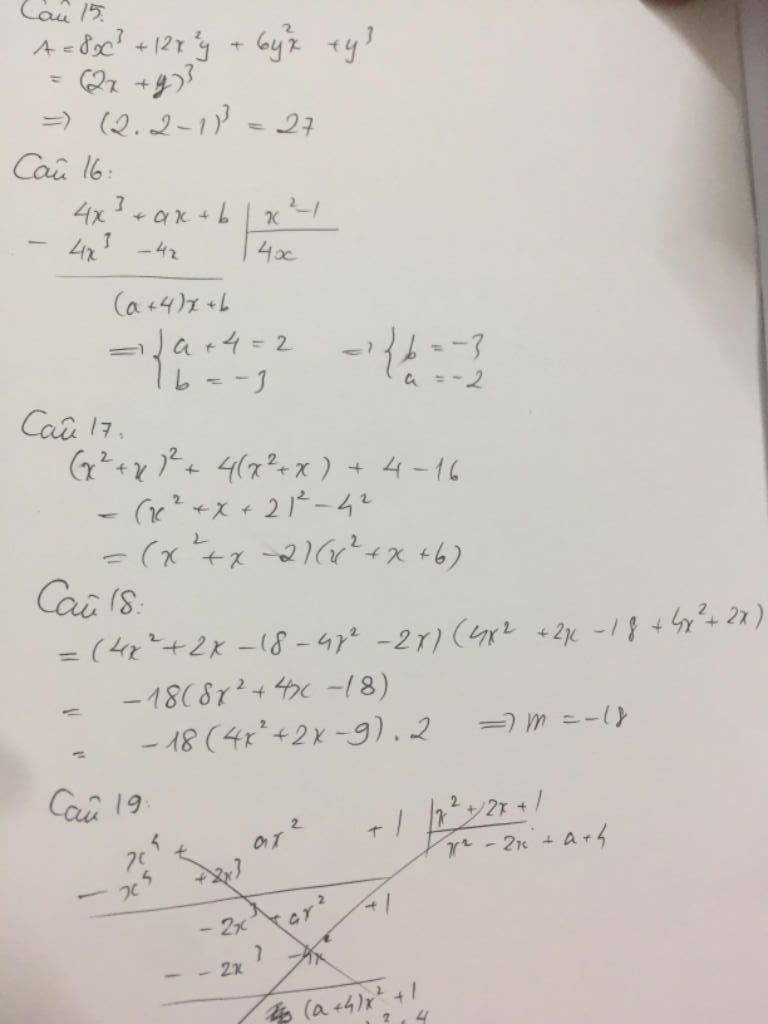 Câu 15:
A = 8x³ + 12x²y + 6y²x + y³
= (2x + y)³
=> (2.2-1)³ = 27
Câu 16:
4x³ + ax + b | x²-1
- 4x³ -4x | 4x
(a+4)x+b
=> { a + 4 = 2 => { b = -3
b = -3 a = -2
Câu 17:
(x²+x)² + 4(x²+x) + 4 - 16
= (x² + x + 2)² - 4²
= (x² + x - 2)(x² + x + 6)
Câu 18:
= (4x² + 2x - 18 - 4x² - 2x)(4x² + 2x - 18 + 4x² + 2x)
= -18(8x² + 4x - 18)
= -18(4x² + 2x - 9).2 => m = -18
Câu 19:
x⁴ + ax² + 1 | x² + 2x + 1
- x⁴ + 2x³ | x² - 2x + a + 4
- 2x³ + ax² + 1
- - 2x³ - 4x²
(a+4)x² + 1